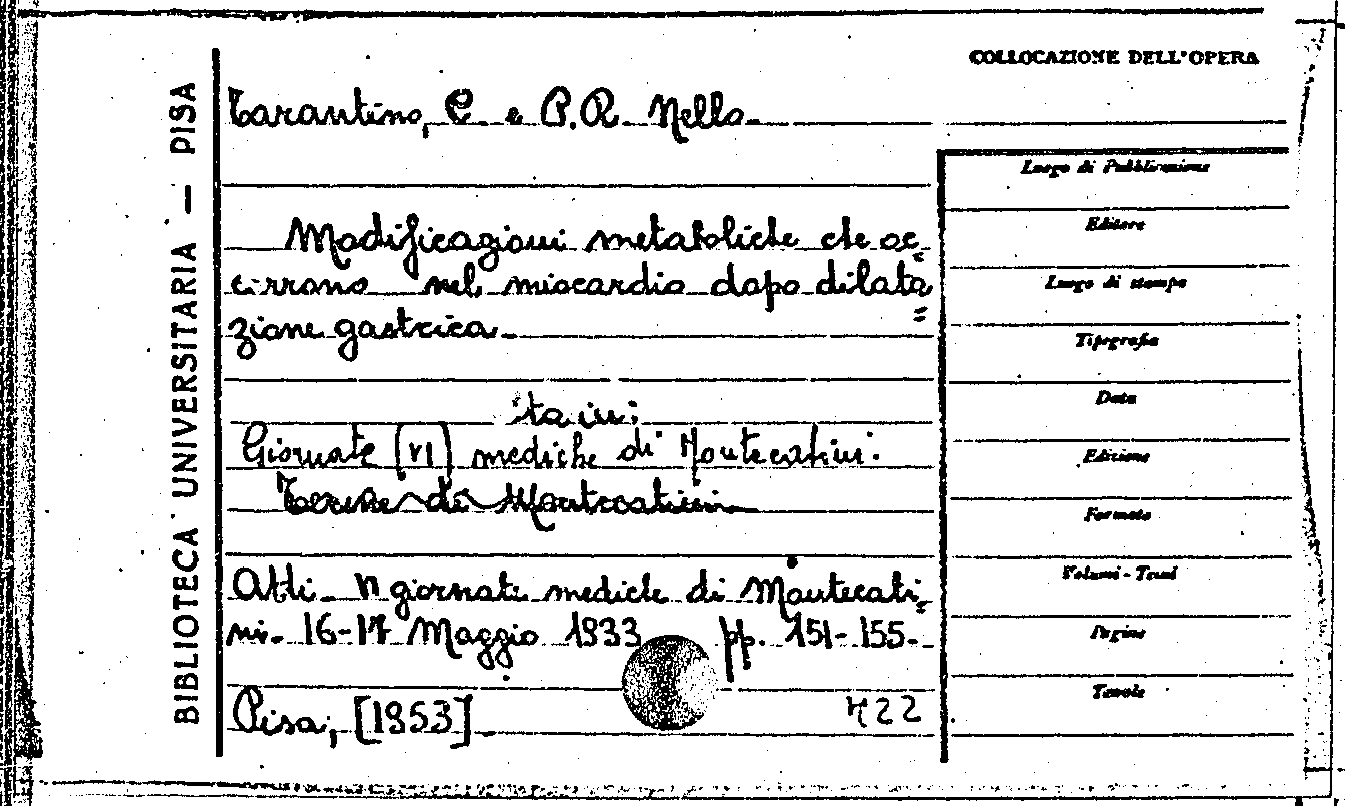 COLLOCAZIONE DELL'OPERA
BIBLIOTECA UNIVERSITARIA — PISA
Tarantino, C. e P.R. Nello.
Modificazioni metaboliche che oc=
corrono nel miocardio dopo dilata=
zione gastrica.
sta in:
Giornate (VI) mediche di Montecatini.
Terme di Montecatini
Atti. VI giornate mediche di Montecati=
ni. 16-17 Maggio 1953 pp. 151-155.
Pisa, [1953].
422
Luogo di Pubblicazione
Editore
Luogo di stampa
Tipografia
Data
Edizione
Formato
Volumi - Tomi
Pagine
Tavole